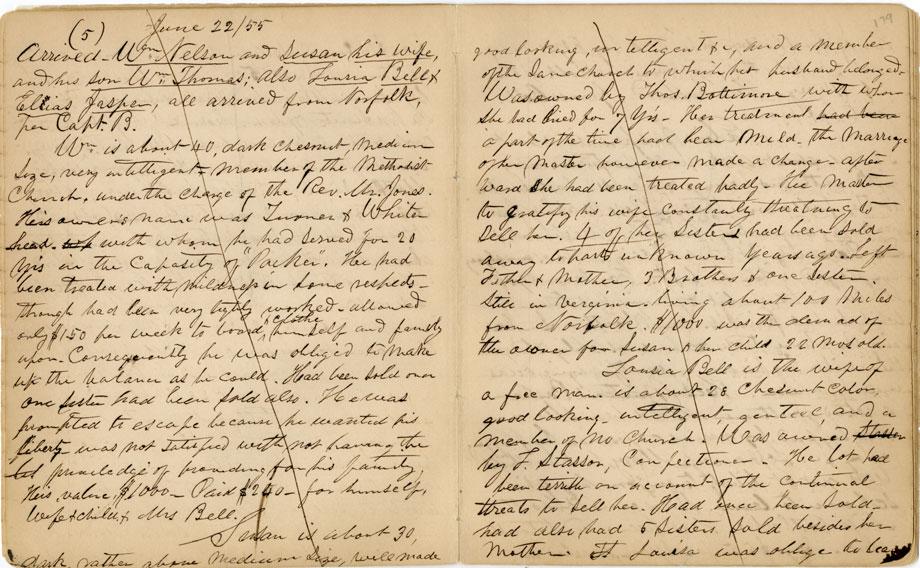 (5) June 22/55
Arrived - Wm Nelson and Susan his wife,
and his son Wm Thomas; also Louisa Bell &
Elias Jasper, all arrived from Norfolk,
per Capt. B.
Wm is about 40, dark chesnut, Medium
size, very intelligent - member of the Methodist
Church, under the charge of the Rev. Mr. Jones.
His owner's name was Turner & White
head with whom he had served for 20
Yrs in the Capacity of "Packer". He had
been treated with mildness in some respects -
though had been very tightly worked - allowed
only $1.50 per week to board, Clothe himself and family
upon. Consequently he was obliged to make
up the balance as he could. Had been sold once
one sister had been sold also. He was
prompted to escape because he wanted his
liberty was not satisfied with not having the
priviledge of providing for his family,
His value, $1000 - Paid $240 - for himself,
Wife & child, & Mrs Bell.
Susan is about 30,
dark, rather above medium size, well made
179
good looking, intelligent &c, and a member
of the same church to which her husband belonged.
Was owned by Thos. Bottimore with whom
she had lived for 7 Yrs - Her treatment had been
a part of the time had been mild, the Marriage
of her Master however made a change - after
ward she had been treated badly - Her Master
to gratify his wife constantly threatning to
sell her. 4 of her Sisters had been sold
away to parts unknown Years ago. Left
Father & Mother, 3 Brothers & one Sister
Still in Verginia living about 100 Miles
from Norfolk. $1000 was the demad of
the owner for Susan & her child 22 Mos old.
Louisia Bell is the wife of
a free man is about 28 Chesnut Color,
good looking intelligent, genteel, and a
Member of no Church. Was owned
by L. Stasson, Confectioner - He lot had
been terrible on account of the continual
threats to sell her. Had once been sold -
had also had 5 sisters sold besides her
Mother. Louisa was oblige to leave